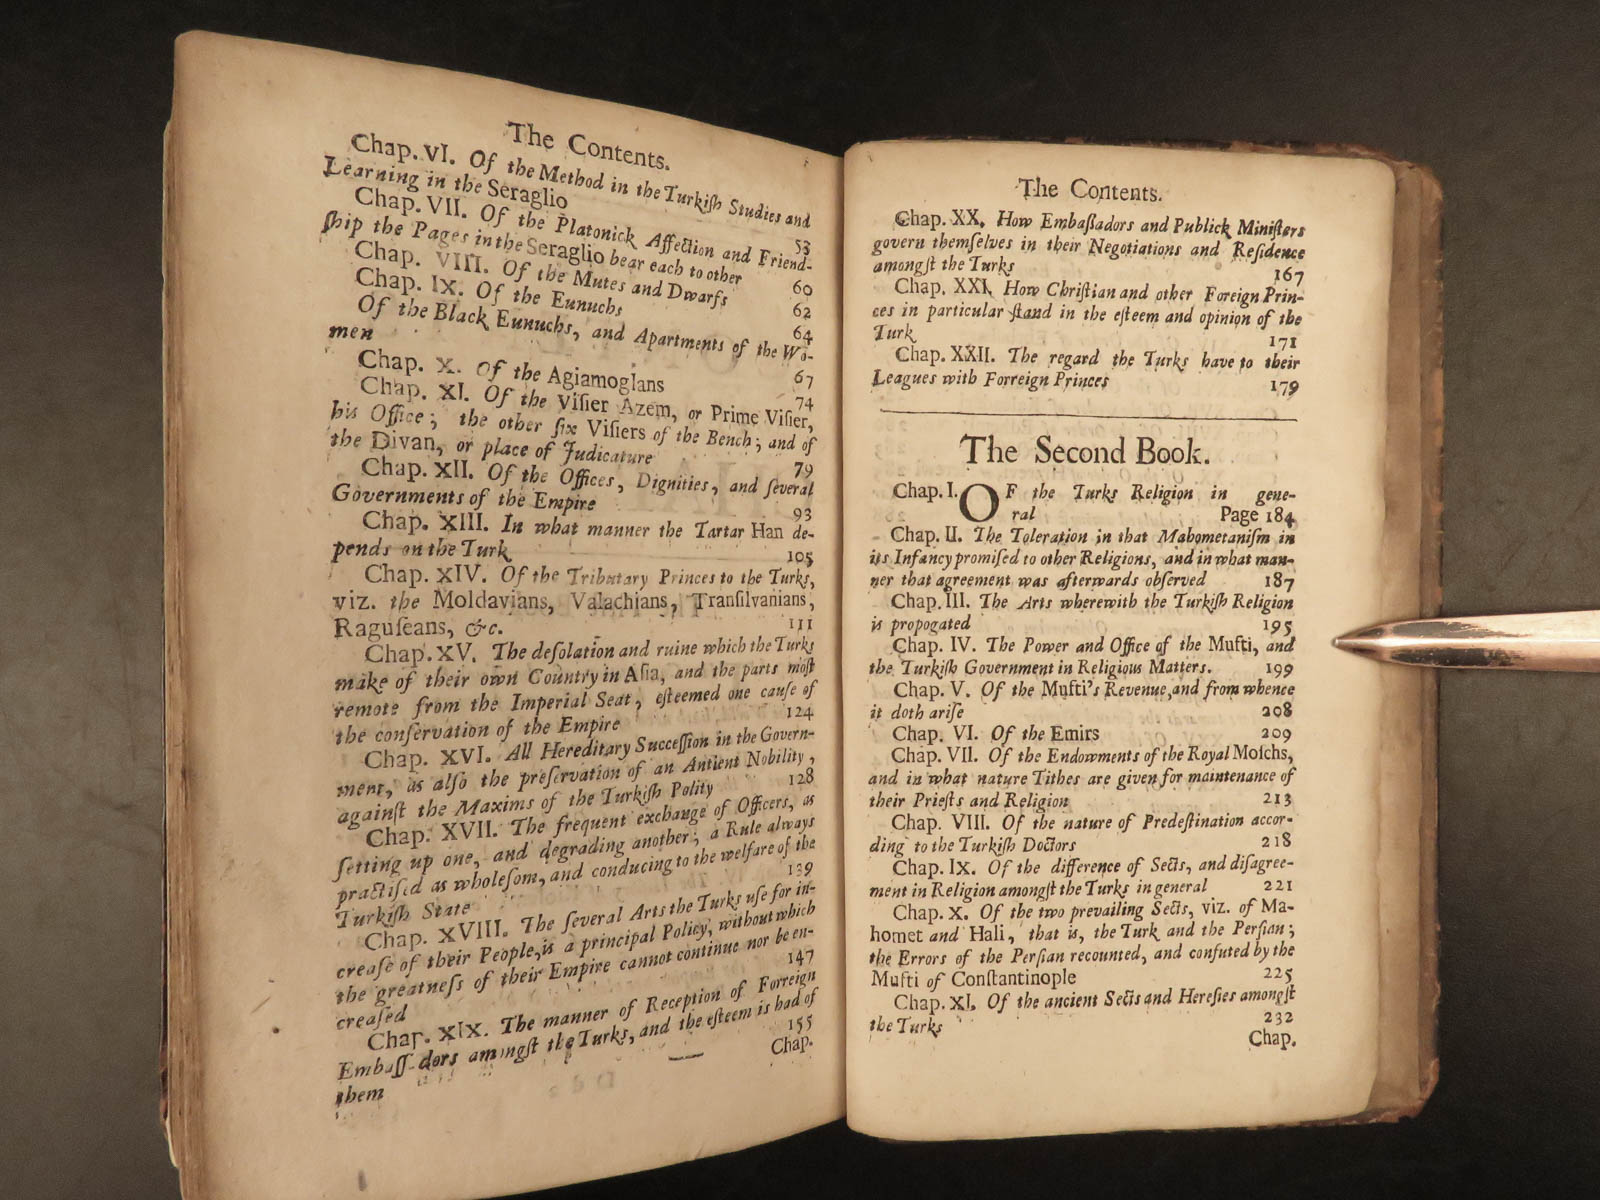 The Contents.
Chap. VI. Of the Method in the Turkiſh Studies and
Learning in the Seraglio 53
Chap. VII. Of the Platonick Affection and Friend-
ſhip the Pages in the Seraglio bear each to other 60
Chap. VIII. Of the Mutes and Dwarfs 62
Chap. IX. Of the Eunuchs 64
Of the Black Eunuchs, and Apartments of the Wo-
men 67
Chap. X. Of the Agiamoglans 74
Chap. XI. Of the Viſier Azem, or Prime Viſier,
his Office; the other ſix Viſiers of the Bench; and of
the Divan, or place of Judicature 79
Chap. XII. Of the Offices, Dignities, and ſeveral
Governments of the Empire 93
Chap. XIII. In what manner the Tartar Han de-
pends on the Turk 105
Chap. XIV. Of the Tributary Princes to the Turks,
viz. the Moldavians, Valachians, Tranſilvanians,
Raguſeans, &c. 111
Chap. XV. The deſolation and ruine which the Turks
make of their own Country in Aſia, and the parts moſt
remote from the Imperial Seat, eſteemed one cauſe of
the conſervation of the Empire 124
Chap. XVI. All Hereditary Succeſſion in the Govern-
ment, as alſo the preſervation of an Antient Nobility,
againſt the Maxims of the Turkiſh Polity 128
Chap. XVII. The frequent exchange of Officers, as
ſetting up one, and degrading another; a Rule always
practiſed as wholeſom, and conducing to the welfare of the
Turkiſh State 139
Chap. XVIII. The ſeveral Arts the Turks uſe for in-
creaſe of their People, is a principal Policy, without which
the greatneſs of their Empire cannot continue nor be en-
creaſed 147
Chap. XIX. The manner of Reception of Forreign
Embaſſadors amongſt the Turks, and the eſteem is had of
them 155
Chap.
The Contents.
Chap. XX. How Embaßadors and Publick Miniſters
govern themſelves in their Negotiations and Reſidence
amongſt the Turks 167
Chap. XXI. How Chriſtian and other Foreign Prin-
ces in particular ſtand in the eſteem and opinion of the
Turk 171
Chap. XXII. The regard the Turks have to their
Leagues with Forreign Princes 179
The Second Book.
Chap. I. OF the Turks Religion in gene-
ral Page 184
Chap. II. The Toleration in that Mahometaniſm in
its Infancy promiſed to other Religions, and in what man-
ner that agreement was afterwards obſerved 187
Chap. III. The Arts wherewith the Turkiſh Religion
is propogated 195
Chap. IV. The Power and Office of the Mufti, and
the Turkiſh Government in Religious Matters. 199
Chap. V. Of the Mufti's Revenue, and from whence
it doth ariſe 208
Chap. VI. Of the Emirs 209
Chap. VII. Of the Endowments of the Royal Moſchs,
and in what nature Tithes are given for maintenance of
their Prieſts and Religion 213
Chap. VIII. Of the nature of Predeſtination accor-
ding to the Turkiſh Doctors 218
Chap. IX. Of the difference of Sects, and diſagree-
ment in Religion amongſt the Turks in general 221
Chap. X. Of the two prevailing Sects, viz. of Ma-
homet and Hali, that is, the Turk and the Perſian;
the Errors of the Perſian recounted, and confuted by the
Mufti of Conſtantinople 225
Chap. XI. Of the ancient Sects and Hereſies amongſt
the Turks 232
Chap.